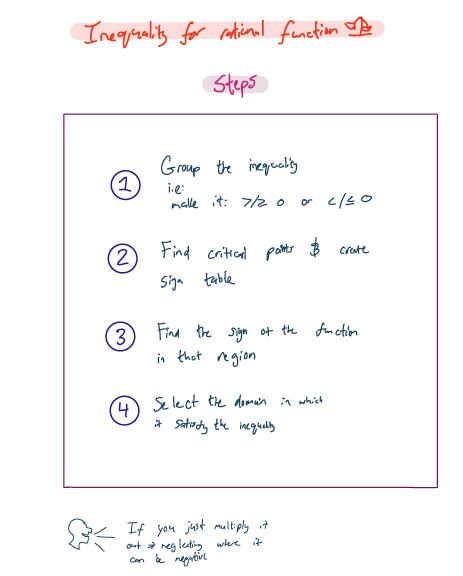 Inequality for rational function
Steps
1
Group the inequality
i.e:
make it: >/≥ 0 or </≤ 0
2
Find critical points & create
sign table
3
Find the sign of the function
in that region
4
Select the domain in which
it satisfy the inequality
If you just multiply it
out → neglecting where it
can be negative